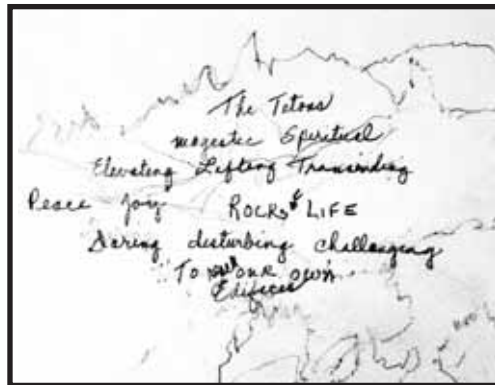 The Tetons
magestic Spiritual
Elevating Lifting Transending
Peace Joy ROCKS LIFE
Daring disturbing challenging
TO OUR OWN
Edifices